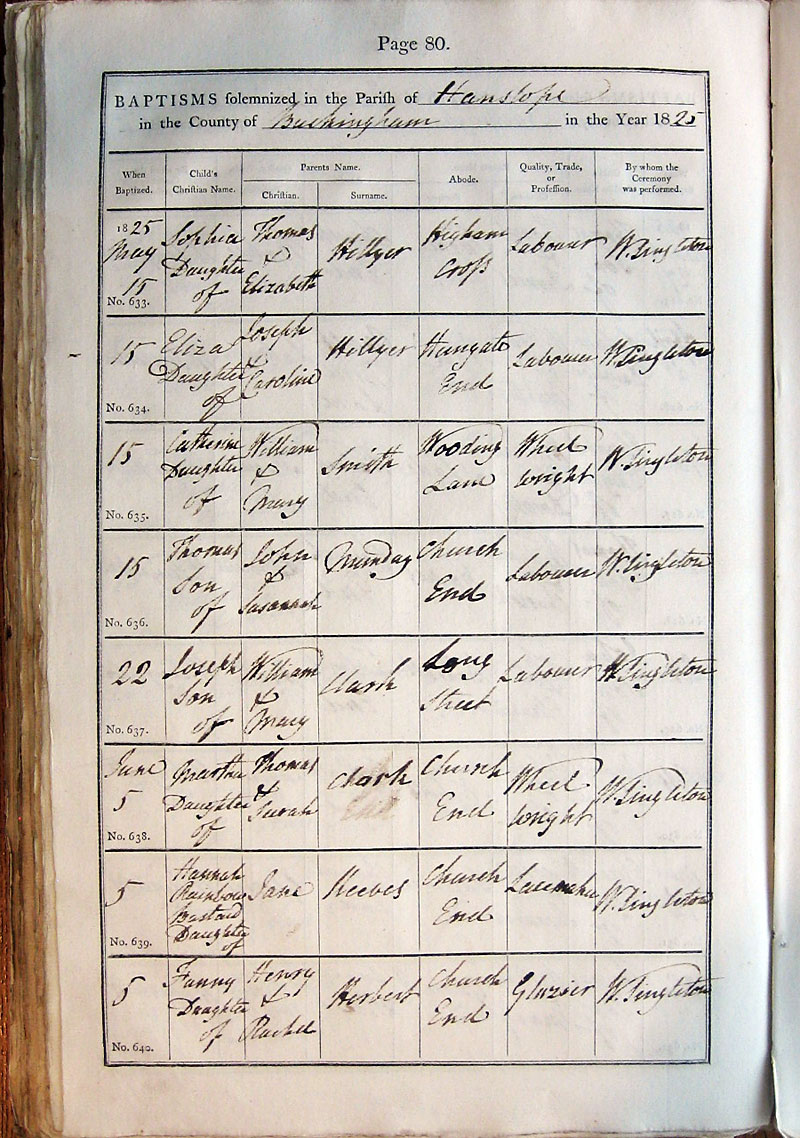 Page 80.
BAPTISMS solemnized in the Parish of Hanslope
in the County of Buckingham in the Year 1825
When Baptized.
Child's Christian Name.
Parents Name.
Christian.
Surname.
Abode.
Quality, Trade, or Profession.
By whom the Ceremony was performed.
1825
May
15
No. 633.
Sophia
Daughter
of
Thomas
&
Elizabeth
Hillyer
Higham
Cross
Labourer
W. Singleton
15
No. 634.
Eliza
Daughter
of
Joseph
&
Caroline
Hillyer
Hungate
End
Labourer
W. Singleton
15
No. 635.
Catherine
Daughter
of
William
&
Mary
Smith
Wooding
Lane
Wheel
wright
W. Singleton
15
No. 636.
Thomas
Son
of
John
&
Susannah
Munday
Church
End
Labourer
W. Singleton
22
No. 637.
Joseph
Son
of
William
&
Mary
Clark
Long
Street
Labourer
W. Singleton
June
5
No. 638.
Martha
Daughter
of
Thomas
&
Sarah
Clark
Church
End
Wheel
wright
W. Singleton
5
No. 639.
Hannah
Rainbow
Bastard
Daughter
of
Jane
Reeves
Church
End
Lacemaker
W. Singleton
5
No. 640.
Fanny
Daughter
of
Henry
&
Rachel
Herbert
Church
End
Glazier
W. Singleton